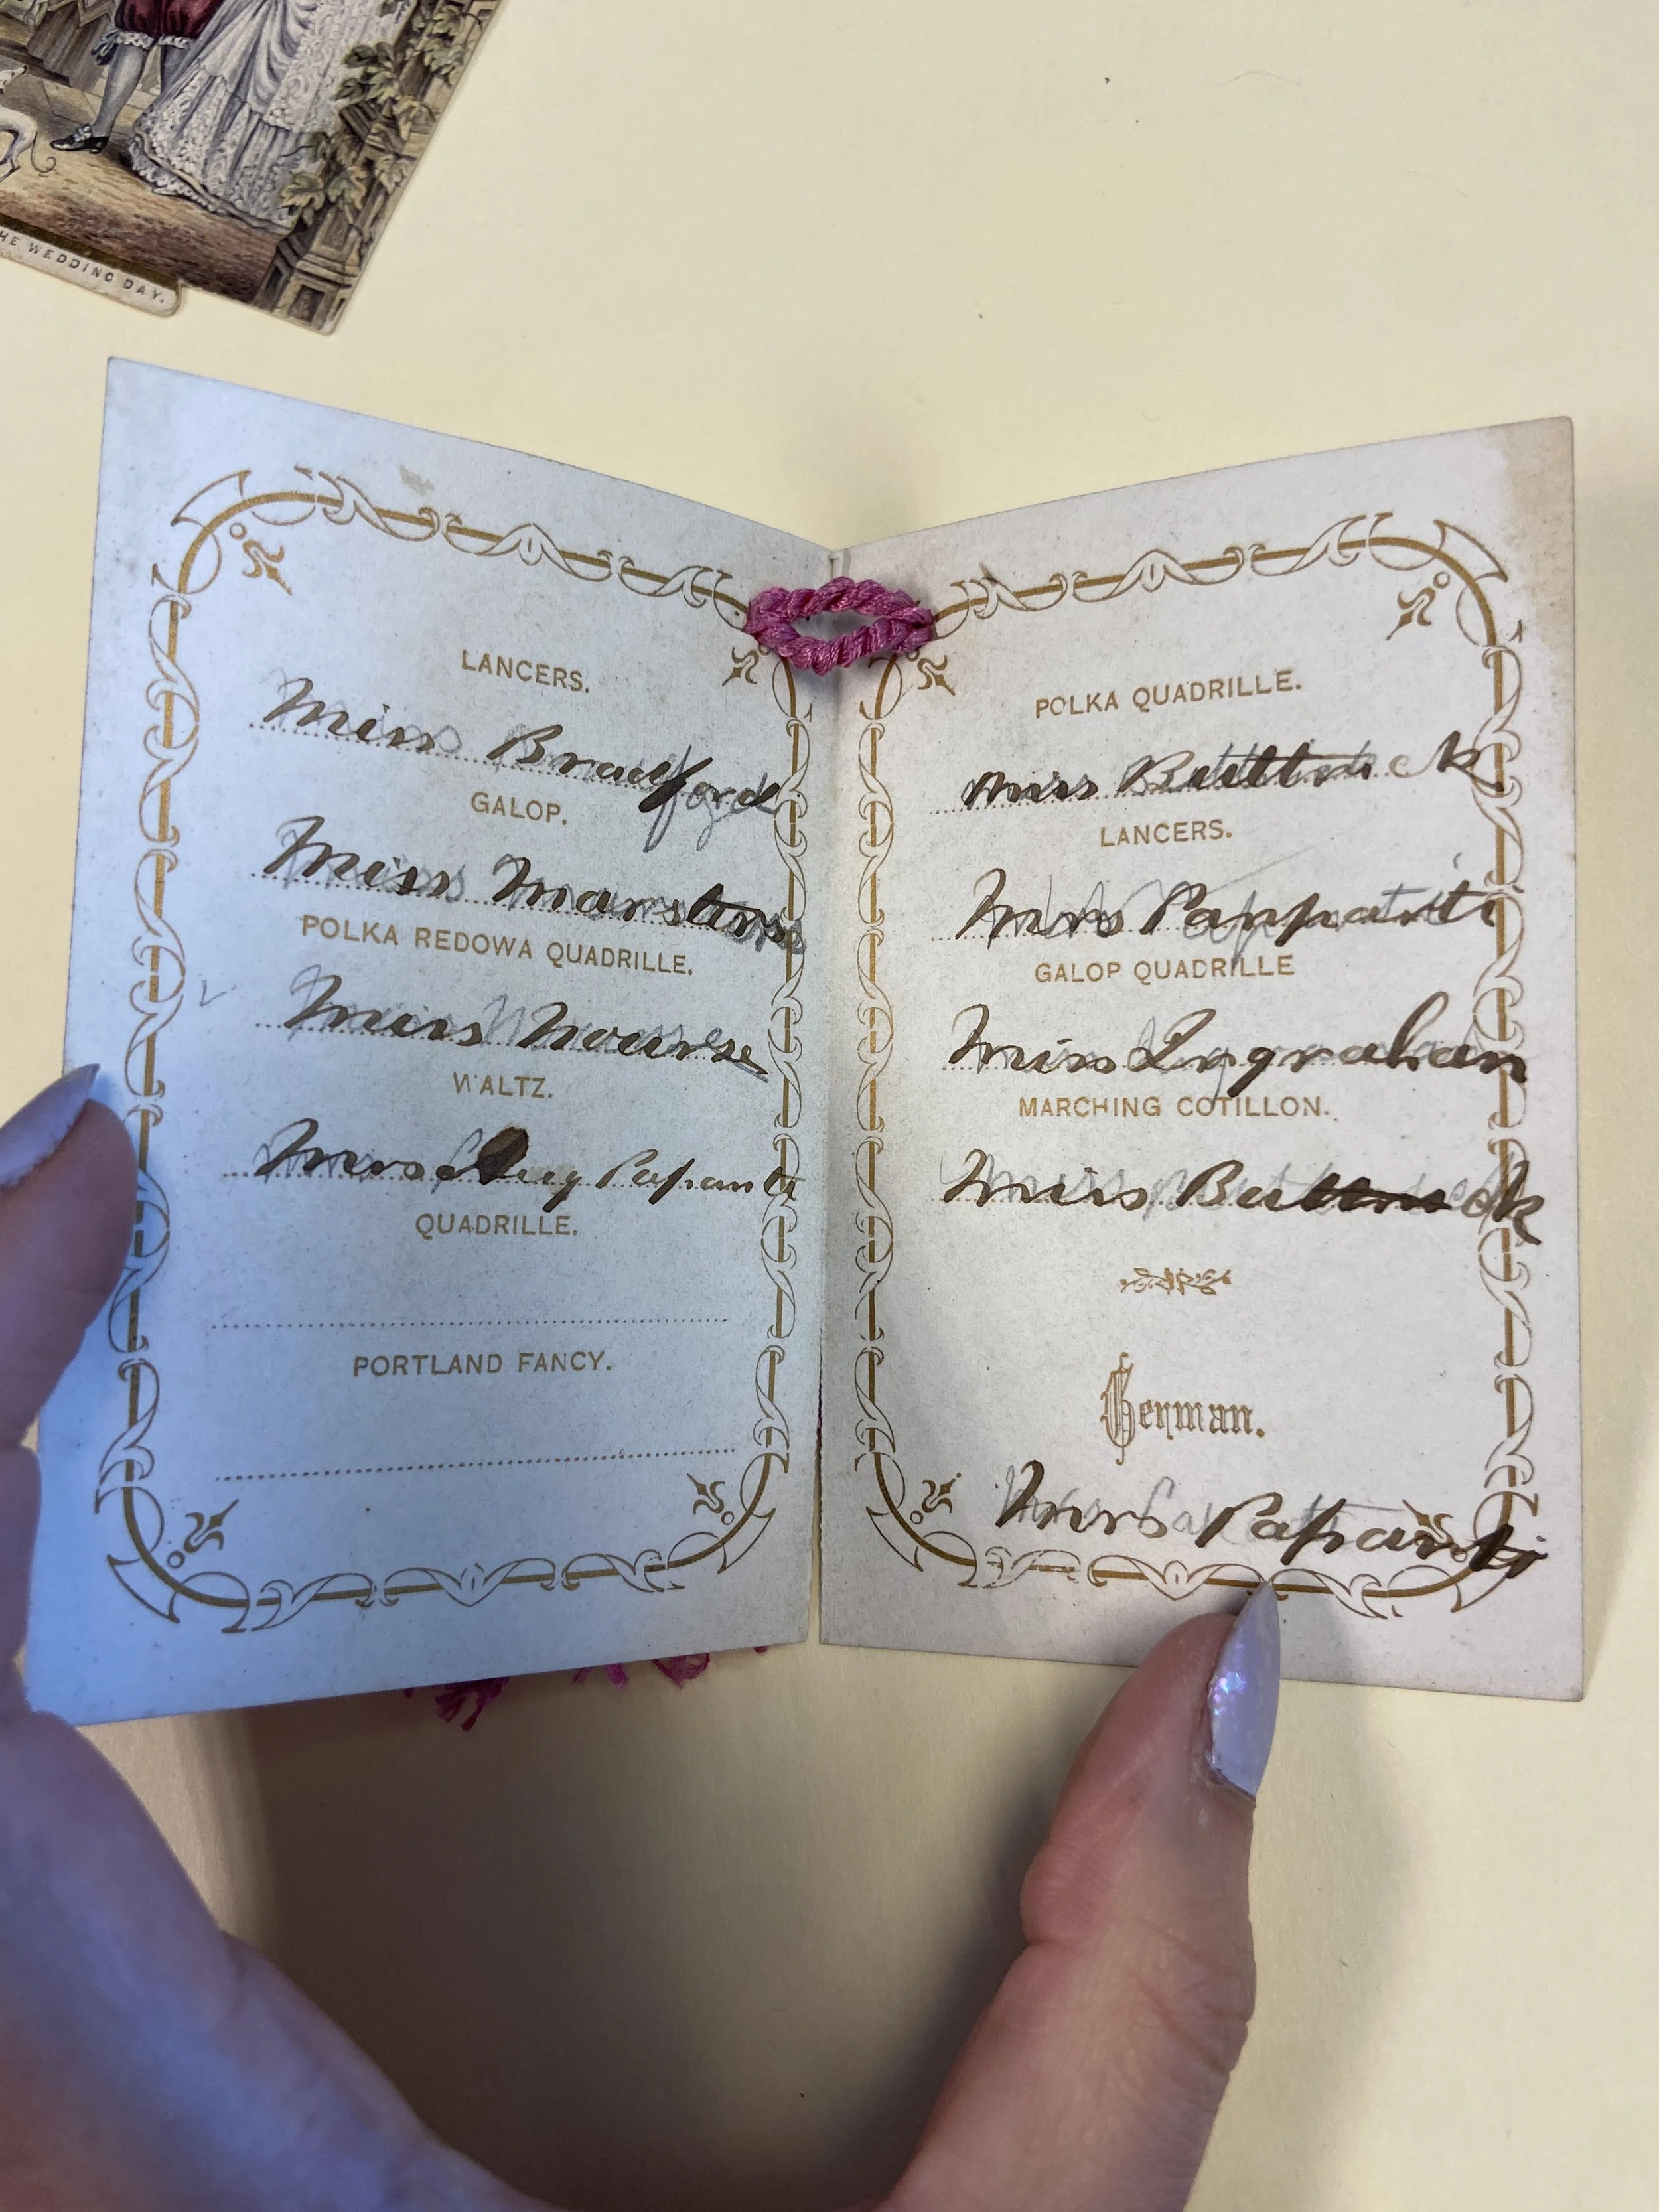 HE WEDDING DAY.
LANCERS.
Miss Bradford
GALOP.
Miss Marsters
POLKA REDOWA QUADRILLE.
Miss Nourse
WALTZ.
Mrs Aug Papanti
QUADRILLE.
PORTLAND FANCY.
POLKA QUADRILLE.
Miss Buttrick
LANCERS.
Mrs Pappanti
GALOP QUADRILLE
Miss Ingrahan
MARCHING COTILLON.
Miss Buttrick
German.
Mrs Papanti